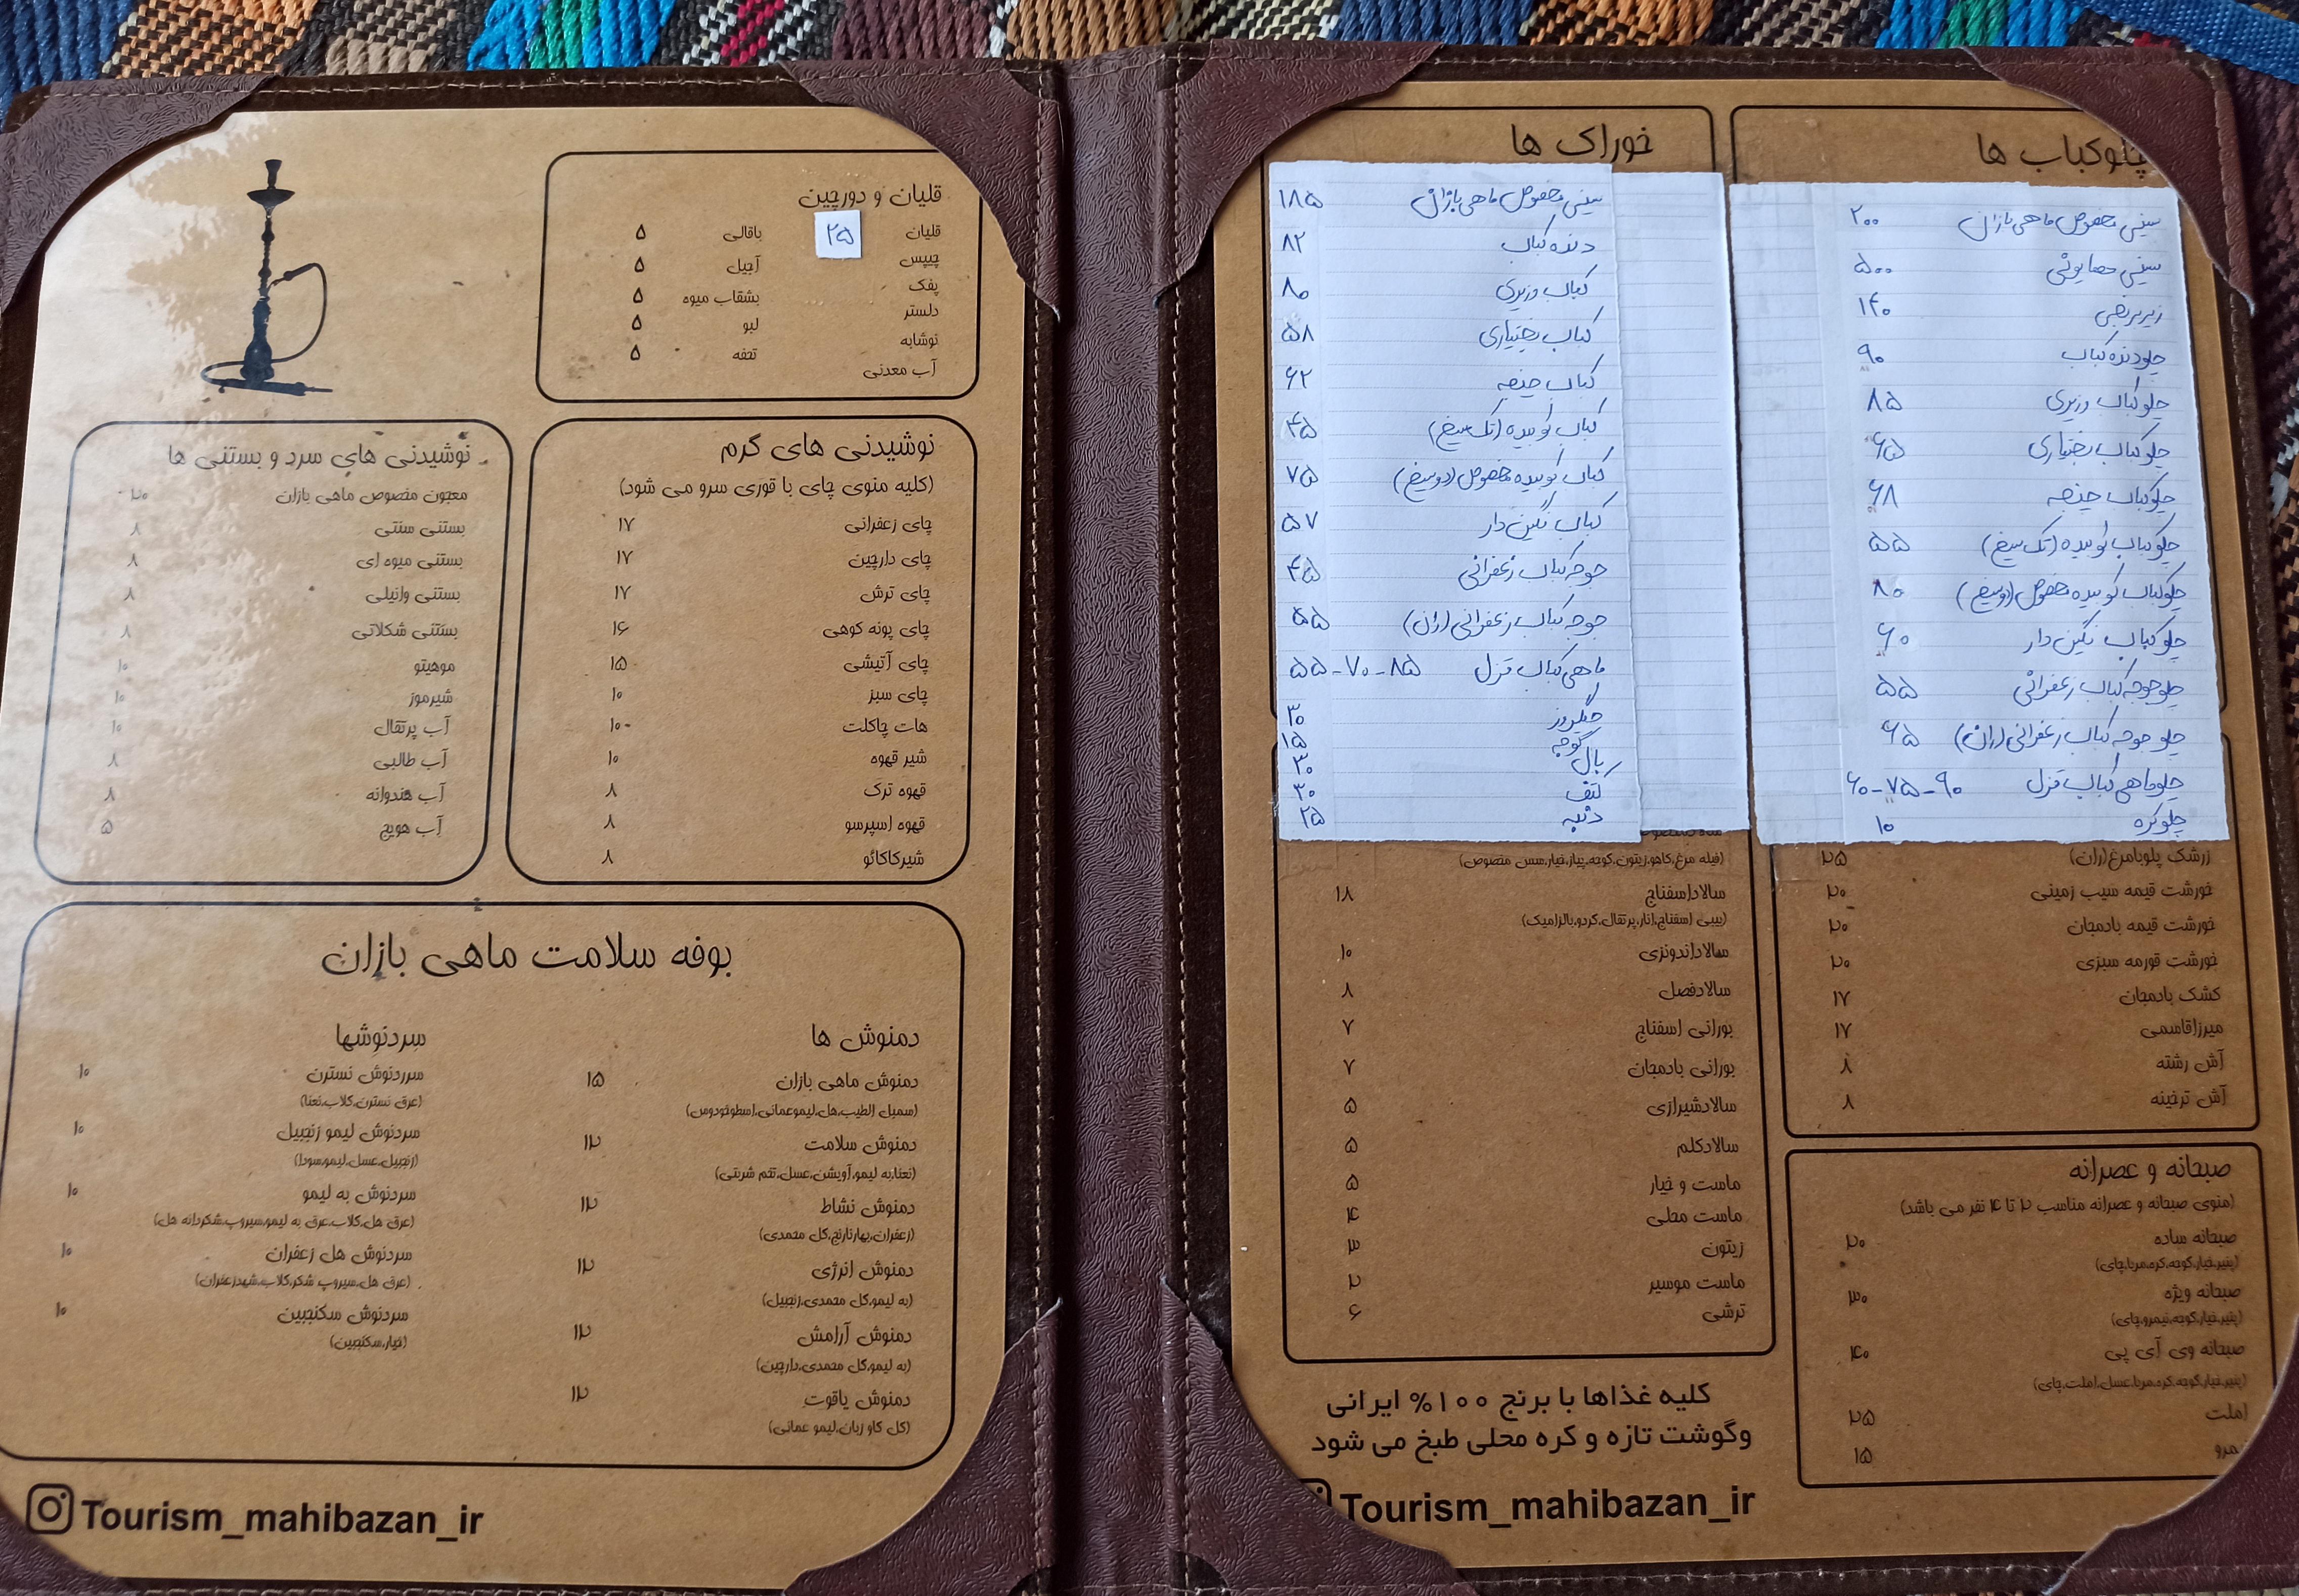 چلوکباب ها
سینی مخصوص ماهی بازان ۲۰۰
سینی همایونی ۵۰۰
زیر برنجی ۱۴۰
چلو دنده کباب ۹۰
چلو کباب وزیری ۸۵
چلو کباب بختیاری ۶۵
چلو کباب چنجه ۶۸
چلو کباب کوبیده (تک سیخ) ۵۵
چلو کباب کوبیده مخصوص (دو سیخ) ۸۰
چلو کباب نگین دار ۶۰
چلو جوجه کباب زعفرانی ۵۵
چلو جوجه کباب زعفرانی (ران) ۶۵
چلو ماهی کباب قزل ۹۰-۷۵-۶۰
چلو کره ۱۰
زرشک پلو با مرغ (ران) ۲۵
خورشت قیمه سیب زمینی ۲۰
خورشت قیمه بادمجان ۲۰
خورشت قورمه سبزی ۲۰
کشک بادمجان ۱۷
میرزاقاسمی ۱۷
آش رشته ۸
آش ترخینه ۸
صبحانه و عصرانه
(منوی صبحانه و عصرانه مناسب ۲ تا ۴ نفر می باشد)
صبحانه ساده ۲۰
(پنیر،خیار،گوجه،کره،مربا،چای)
صبحانه ویژه ۳۰
(پنیر،خیار،گوجه،نیمرو،چای)
صبحانه وی آی پی ۴۰
(پنیر،خیار،گوجه،کره،مربا،عسل،املت،چای)
املت ۲۵
نیمرو ۱۵
خوراک ها
سینی مخصوص ماهی بازان ۱۸۵
دنده کباب ۸۲
کباب وزیری ۸۰
کباب بختیاری ۵۸
کباب چنجه ۶۲
کباب کوبیده (تک سیخ) ۴۵
کباب کوبیده مخصوص (دو سیخ) ۷۵
کباب نگین دار ۵۷
جوجه کباب زعفرانی ۴۵
جوجه کباب زعفرانی (ران) ۵۵
ماهی کباب قزل ۸۵-۷۰-۵۵
جگروز ۳۰
گوجه ۱۵
بال ۳۰
کتف ۳۰
دنبه ۲۵
(فیله مرغ،کاهو،زیتون،گوجه،پیاز،خیار،سس مخصوص)
سالاد اسفناج ۱۸
(بیبی اسفناج،انار،پرتقال،گردو،بالزامیک)
سالاد اندونزی ۱۰
سالاد فصل ۸
بورانی اسفناج ۷
بورانی بادمجان ۷
سالاد شیرازی ۵
سالاد کلم ۵
ماست و خیار ۵
ماست محلی ۴
زیتون ۳
ماست موسیر ۲
ترشی ۶
کلیه غذاها با برنج ۱۰۰% ایرانی
و گوشت تازه و کره محلی طبخ می شود
Tourism_mahibazan_ir
قلیان و دورچین
قلیان ۲۵ باقالی ۵
چیپس آجیل ۵
پفک بشقاب میوه ۵
دلستر لبو ۵
نوشابه تخمه ۵
آب معدنی
نوشیدنی های گرم
(کلیه منوی چای با قوری سرو می شود)
چای زعفرانی ۱۷
چای دارچین ۱۷
چای ترش ۱۷
چای پونه کوهی ۱۶
چای آتیشی ۱۵
چای سبز ۱۰
هات چاکلت ۱۰
شیر قهوه ۱۰
قهوه ترک ۸
قهوه اسپرسو ۸
شیرکاکائو ۸
نوشیدنی های سرد و بستنی ها
معجون مخصوص ماهی بازان ۲۰
بستنی سنتی ۸
بستنی میوه ای ۸
بستنی وانیلی ۸
بستنی شکلاتی ۸
موهیتو ۱۰
شیرموز ۱۰
آب پرتقال ۱۰
آب طالبی ۸
آب هندوانه ۸
آب هویج ۵
بوفه سلامت ماهی بازان
دمنوش ها
دمنوش ماهی بازان ۱۵
(سمبل الطیب،هل،لیموعمانی،اسطوخودوس)
دمنوش سلامت ۱۲
(نعنا،به لیمو،آویشن،عسل،تخم شربتی)
دمنوش نشاط ۱۲
(زعفران،بهارنارنج،گل محمدی)
دمنوش انرژی ۱۲
(به لیمو،گل محمدی،زنجبیل)
دمنوش آرامش ۱۲
(به لیمو،گل محمدی،دارچین)
دمنوش یاقوت ۱۲
(گل گاو زبان،لیمو عمانی)
سردنوشها
سرردنوش نسترن ۱۰
(عرق نسترن،گلاب،نعنا)
سردنوش لیمو زنجبیل ۱۰
(زنجبیل،عسل،لیمو،سودا)
سردنوش به لیمو ۱۰
(عرق هل،گلاب،عرق به لیمو،سیروپ،شکر،دانه هل)
سردنوش هل زعفران ۱۰
(عرق هل،سیروپ شکر،گلاب،شهدزعفران)
سردنوش سکنجبین ۱۰
(خیار،سکنجبین)
Tourism_mahibazan_ir